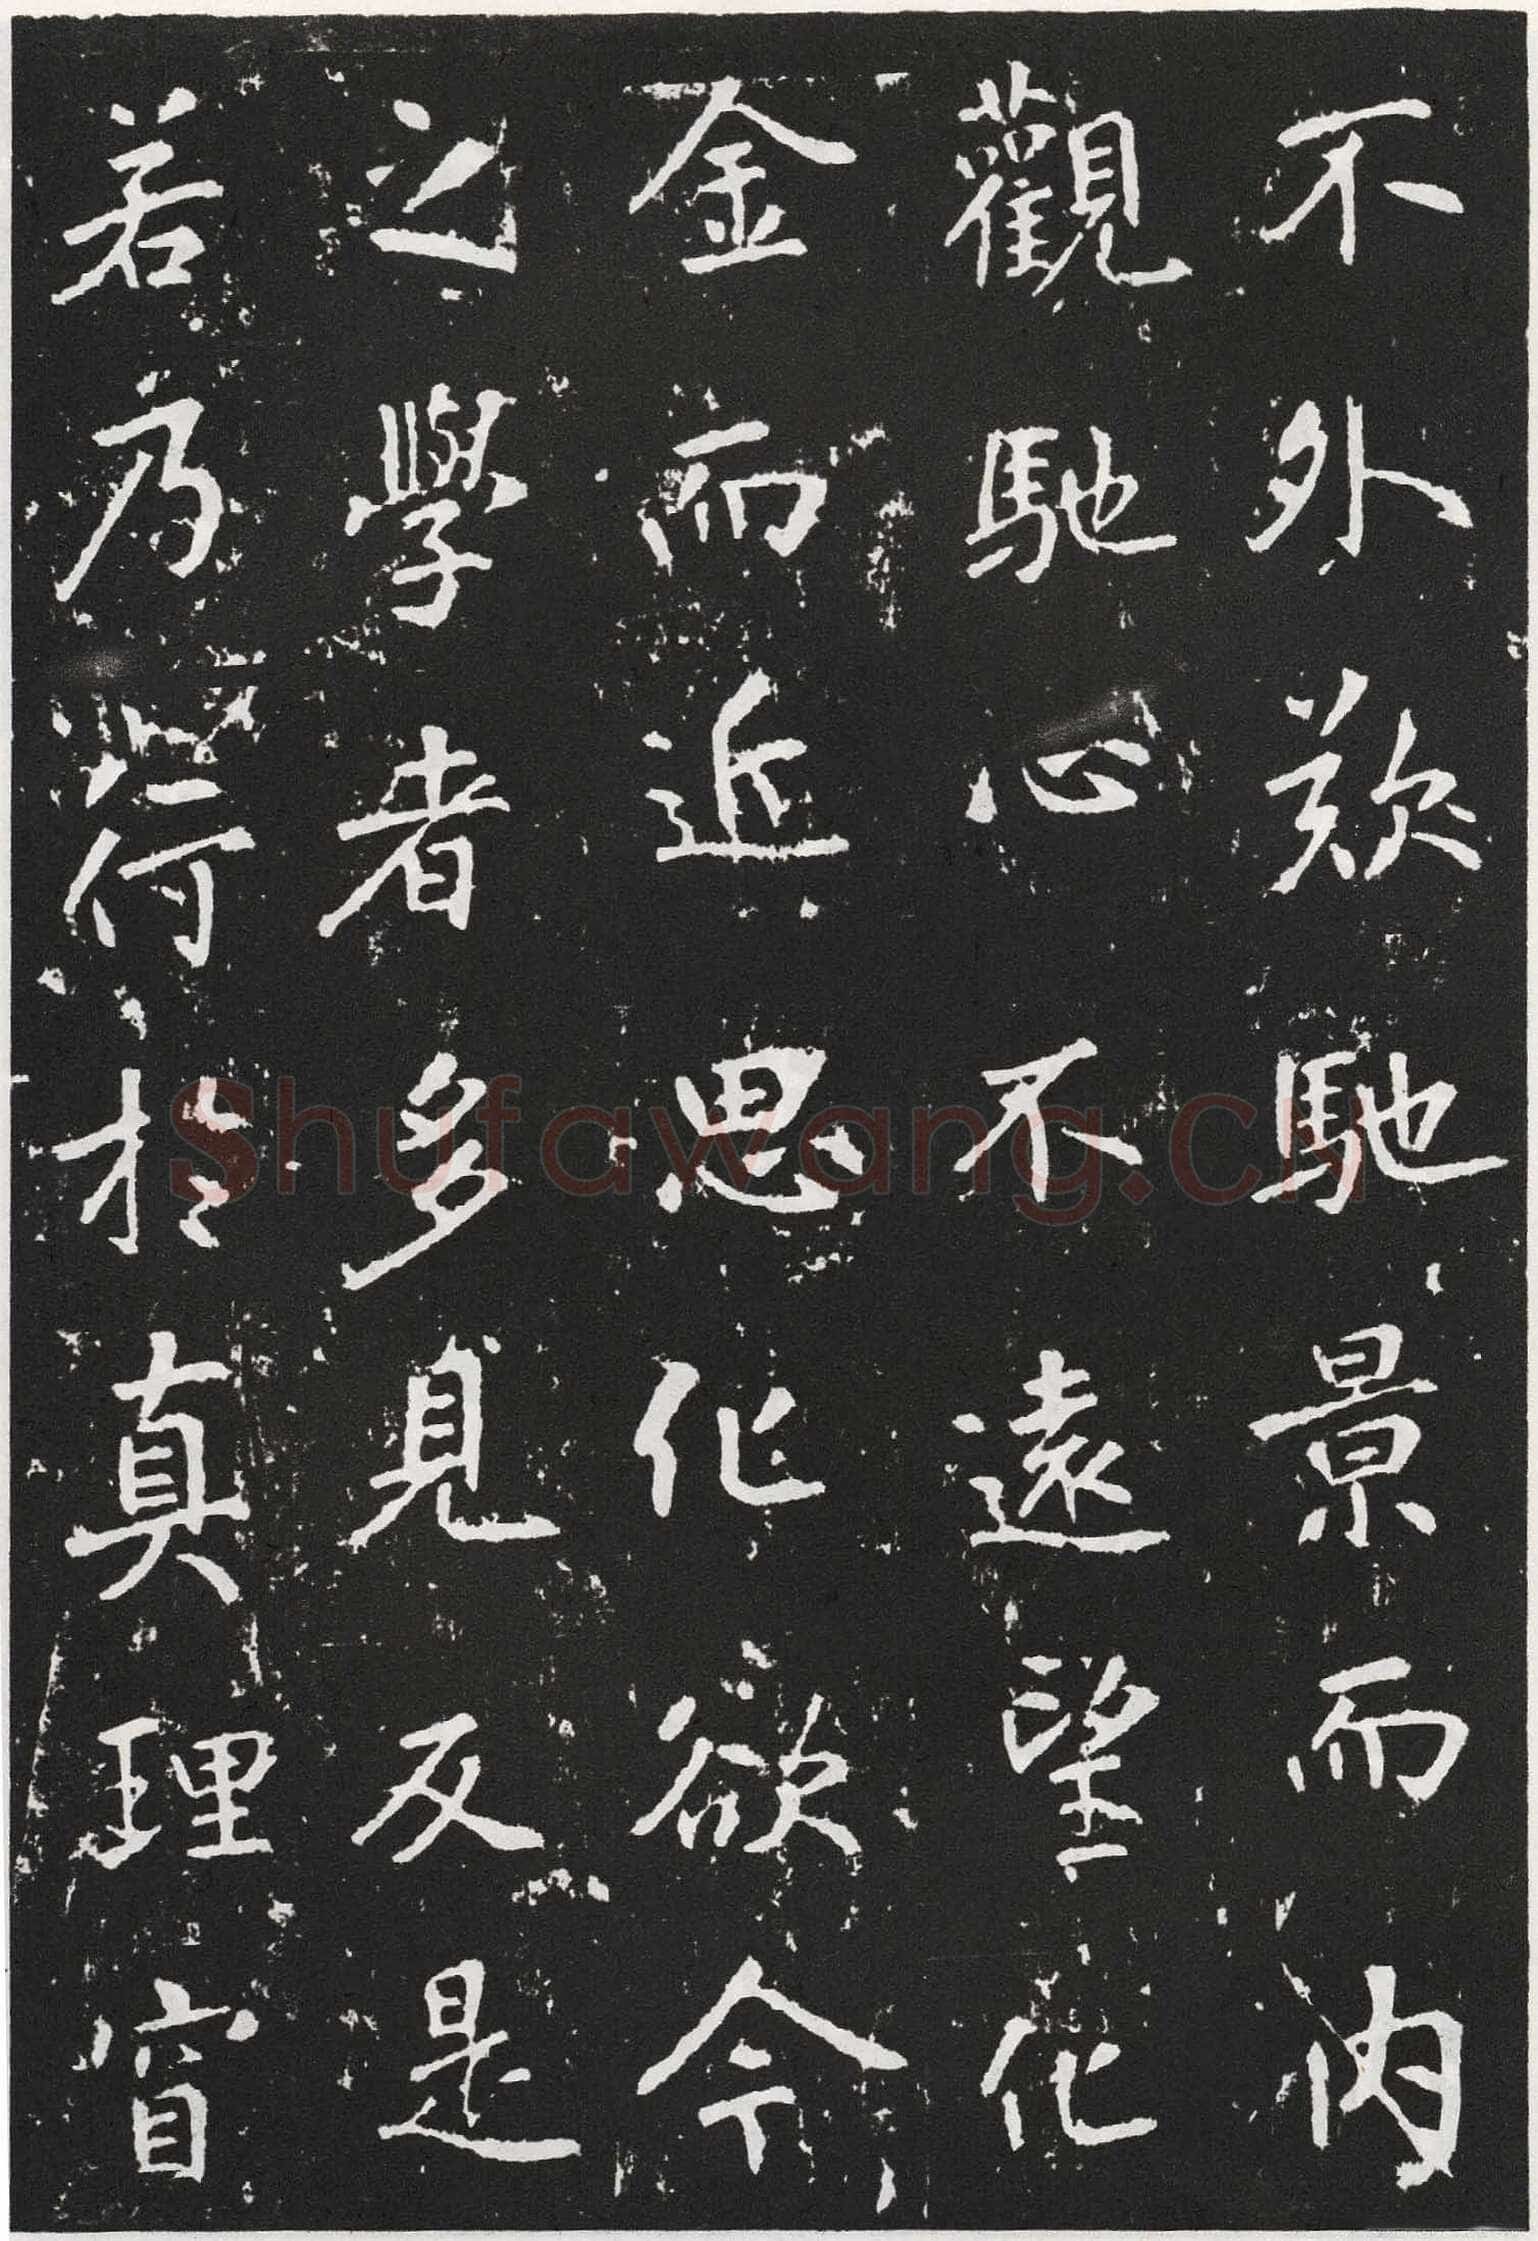 不外欻馳景而内
觀馳心不遠望化
金而近思化欲今
之學者多見反是
若乃於真理窅
Shufawang.CN